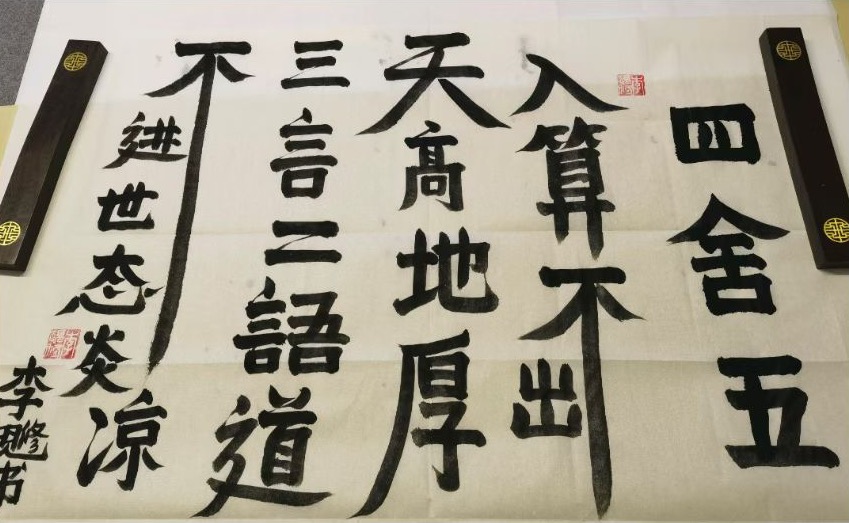 四舍五
入算不出
天髙地厚
三言二語道
不進世态炎凉
李书